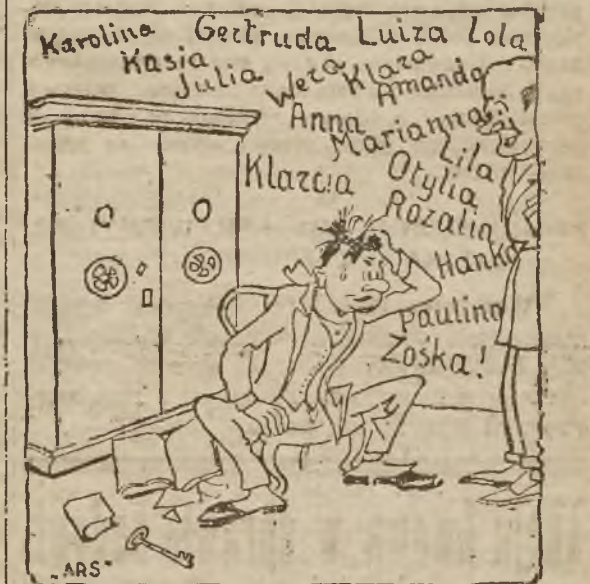 Karolina Gertruda Luiza Lola
Kasia
Julia Wera Klara
Amanda
Anna
Marianna
Lila
Klarcia Otylia
Rozalia
Hanka
Paulina
Zośka!
„ARS"